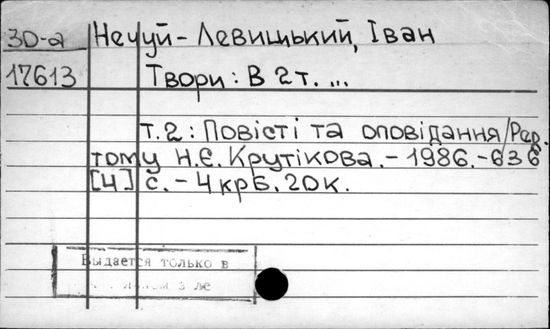 30-а Нечуй-Левицький, Іван
17613 Твори: В 2 т. ...
т.2: Повісті та оповідання/Ред.
тому Н.Є. Крутікова.-1986.-636
[4] с.-4 крб. 20к.
Выдается только в